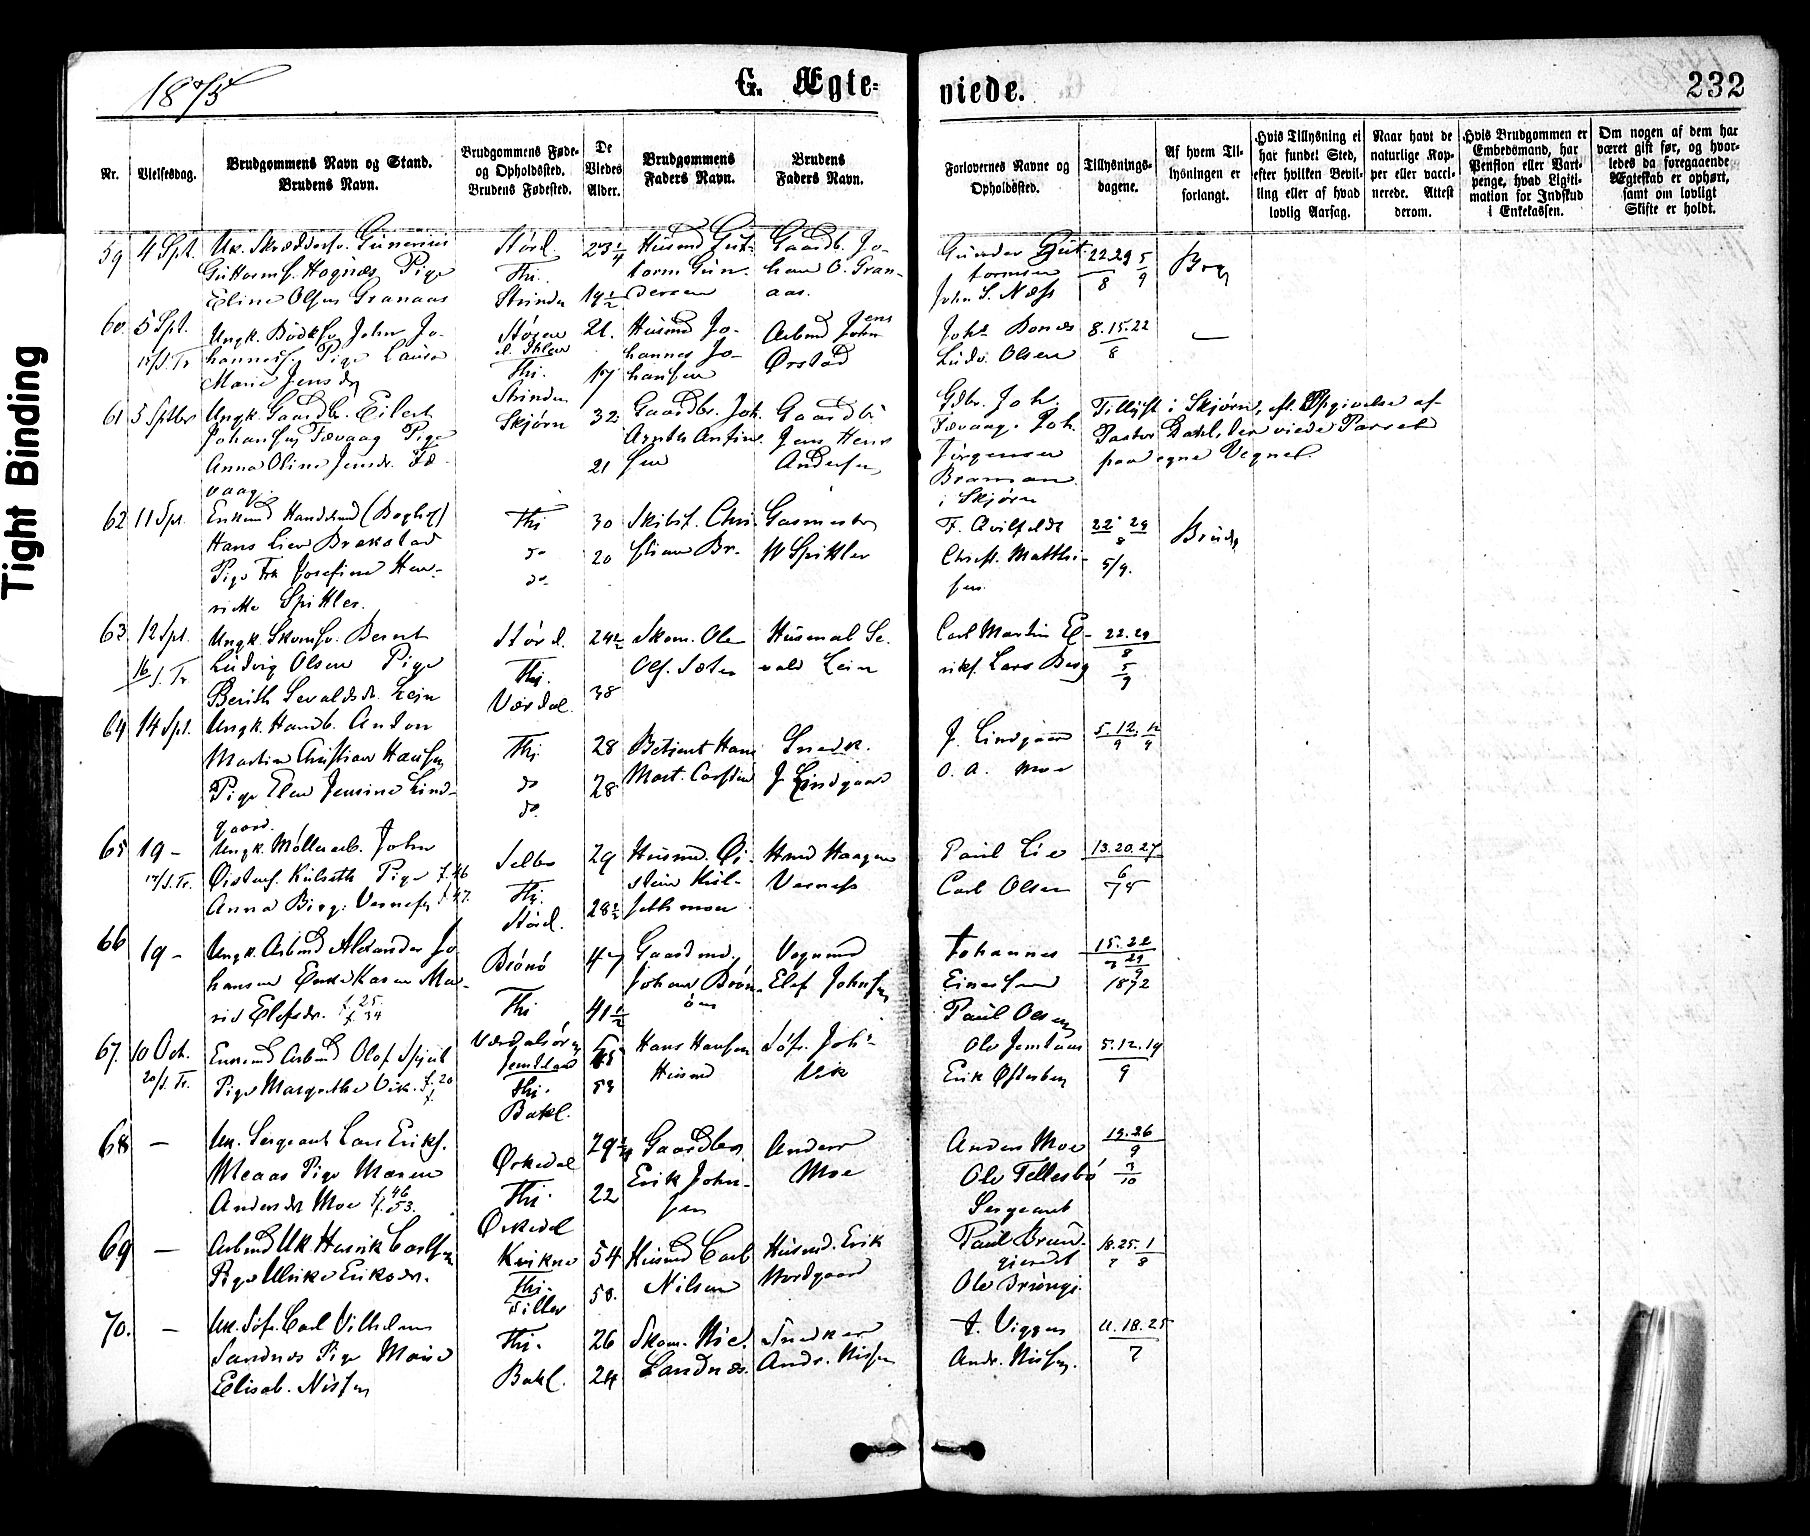 Tight Binding
1875
G. Ægte-
viede.
232
Nr.
Vielsesdag.
Brudgommens Navn og Stand.
Brudens Navn.
Brudgommens Føde-
og Opholdssted.
Brudens Fødested.
De
Viedes
Alder.
Brudgommens
Faders Navn.
Brudens
Faders Navn.
Forlovernes Navne og
Opholdssted.
Tillysnings-
dagene.
Af hvem Til-
lysningen er
forlangt.
Hvis Tillysning ei
har fundet Sted,
efter hvilken Bevil-
ling eller af hvad
lovlig Aarsag.
Naar havt de
naturlige Kop-
per eller vacci-
nerede. Attest
derom.
Hvis Brudgommen er
Embedsmand, har
Pension eller Vart-
penge, hvad Ligiti-
mation for Indskud
i Enkekassen.
Om nogen af dem har
været gift før, og hvor-
ledes da foregaaende
Ægteskab er ophørt,
samt om lovligt
Skifte er holdt.
59 4 Spt.
Guttormf. Hognæs Pige
Eline Olsen Granaas
Størd.
Thj.
Strinden
23 1/4
19 1/2
Husmd Gut-
torm Gun-
dersen
Gaardb. Jo-
han O. Gran-
aas.
Gunder Gut-
tormsen
John S. Næss
22.29 5
8 9
Brg
60. 5 Spt.
Ungk. Johan Jo-
hannesf Pige Laura
Marie Jensdr
Støren
Thj.
Strinden
21.
17
Husmd Jo-
hannes Jo-
hansen
Arbmd Jens
John
Ørstad
Joh. Bonæs
Ludv. Olsen
8.15.22
8
61 5 Sptbr
Ungk. Gaardbr. Eilert
Johansen Fævaag Pige
Anna Oline Jensdr. Fæ-
vaag.
Skjørn
32
21
Gaardbr. Joh.
sen
Gaardbr
Jens Henr
Andersen
Gdbr. Joh.
Fævaag. Joh.
Jørgensen
i Skjørn
Tillyst i Skjørn, eft. Opgivelse af
Pastor Dahl, der viede Parret
paa egne Vegne.
62 11 Spt.
Enkemd Handelsmd
Hans Lien Brækstad
Pige Frk Josefine Hen-
riette Spittler.
Thj
do
do.
30
20
Skibsf. Chri-
stian Br.
Gasmester
W Spittler
Christ. Matthi-
sen
22 29
8
5/9.
Brudg
63 12 Spt.
16/S. Tr
Ungk. Skomsv. Bernt
Ludvig Olsen Pige
Berith Sevaldsdr. Lein
Størd.
Thj.
Værdal.
24 1/2
38
Skom. Ole
Ols. Sæter
Husmd Se-
vald Lein
Carl Martin El-
rikf. Lars Berg
22.29
8
5
9
64 14 Spt.
Ungk. Handb. Anton
Martin Christian Hansen
Pige Elen Jensine Lind-
gaard.
Thj
do
do.
28
28
Betjent Hans
Mart. Carsten
Snedk.
J Lindgaard
J. Lindgaard
O. A. Moe
5.12 12
9 9
65 19 -
17/S. Tr.
Ungk. Møllerarb. John
Øistens. Kulseth Pige f.46
Anna Birg. Vernes f 47.
Selbo
Thj.
Størd.
29
28 1/2
Husmd. Øi-
stein Kul-
sethmoen
Hmd Haagen
Verness
Paul Lie
Carl Olsen
13.20.27
6
75
66 19 -
Ungk. Arbmd Alexander Jo-
hansen Enke Karen Ma-
rie Elefsdr. f. 25.
f 34
Brønø
Thj
47
41 1/2
Gaardmd.
Johan Brøn-
øen
Vognmd
Elef Johnsen
Johannes
Einersen
Paul Olsen
15.22
29
9
1872
67. 10 Oct.
20/S. Tr.
Enkemd Arbmd Olof Schjul
Pige Margrethe Vik. f. 20
Værdalsøren
Jemtland
Thj.
Bakl.
53
Hans Hansen
Husmd
Søf. Joh.
Vik
Ole Jemtaas
Erik Østerberg
5.12.19
9
68 -
Uk. Sergeant Lars Eriks.
Meaas Pige Maren
Andersdr Moe f. 46
f. 53.
Ørkedal
Thj.
Ørkedal
29 1/4
22
Gaardbr
Erik John-
sen
Anders
Moe
Anders Moe
Ole Tellesbø
Sergeant
19.26
9
3
10
69 -
Arbmd Uk Henrik Carlsen
Pige Ulrike Eriksdr.
Kvikne
Thj.
Tiller
54
50.
Husmd Carl
Nilsen
Husmd. Erik
Nordgaard
Paul Brund-
gjerdet
18.25.1
7 8
70. -
Uk. Søf. Carl Vilhelm
Sandnæs Pige Marie
Elisab. Nissen
Thj.
Bakl.
26
24
Skom. Nic.
Sandnæs.
Snedker
Andr. Nissen
T. Viggen
Andr. Nissen.
11.18.25
7